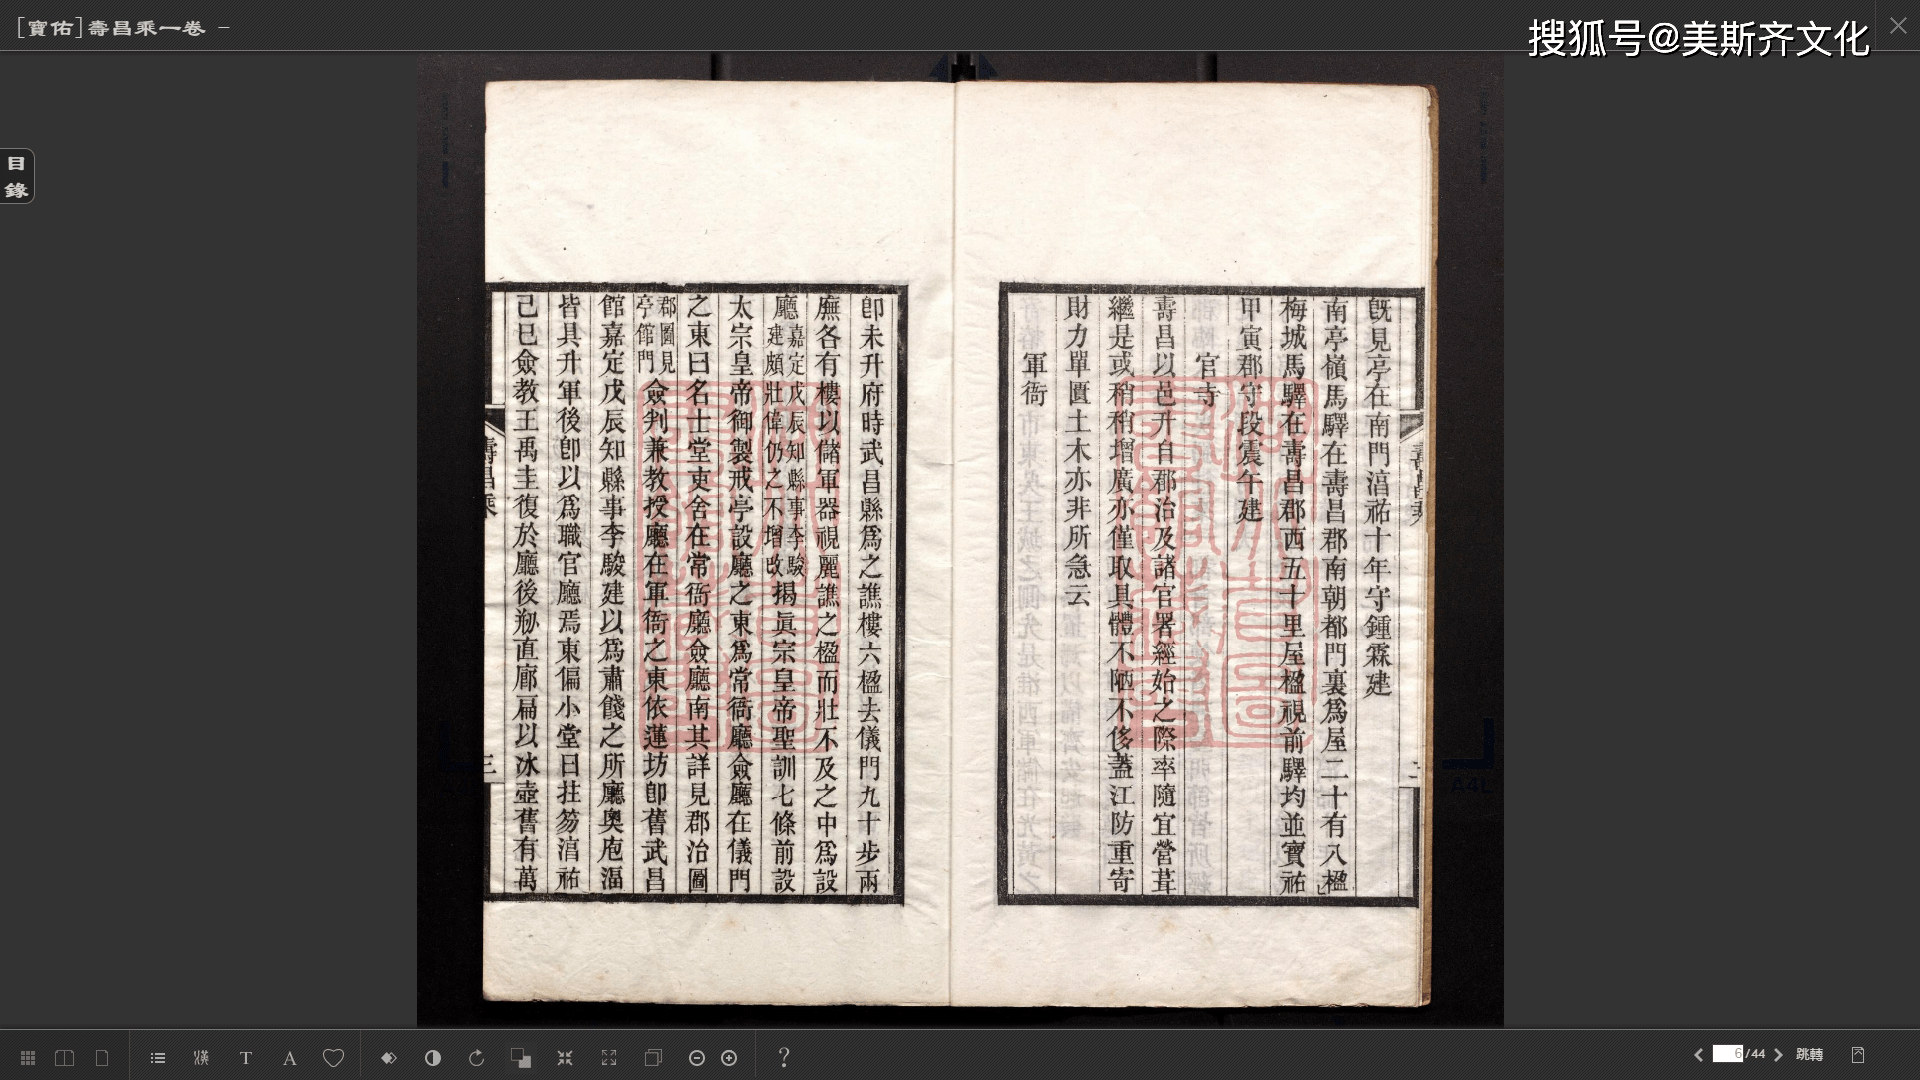 [寶佑]壽昌乘一卷 —
搜狐号@美斯齐文化
目錄
旣見亭在南門湻祐十年守鍾霖建
南亭嶺馬驛在壽昌郡南朝都門裏爲屋二十有八楹
梅城馬驛在壽昌郡西五十里屋楹視前驛均並寶祐
甲寅郡守段震午建
官寺
壽昌以邑升自郡治及諸官署經始之際率隨宜營葺
繼是或稍稍增廣亦僅取具體不陋不侈蓋江防重寄
財力單匱土木亦非所急云
軍衙
卽未升府時武昌縣爲之譙樓六楹去儀門九十步兩
廡各有樓以儲軍器視麗譙之楹而壯不及之中爲設
廳嘉定戊辰知縣事李駿建頗壯偉仍之不增改揭眞宗皇帝聖訓七條前設
太宗皇帝御製戒亭設廳之東爲常衙廳僉廳在儀門
之東曰名士堂吏舍在常衙廳僉廳南其詳見郡治圖
郡圖見亭館門僉判兼教授廳在軍衙之東依蓮坊卽舊武昌
館嘉定戊辰知縣事李駿建以爲肅餞之所廳奧庖湢
皆具升軍後卽以爲職官廳焉東偏小堂曰拄笏湻祐
己巳僉教王禹圭復於廳後剏直廊扁以冰壺舊有萬
壽昌乘
三
T
A
?
6/44
跳轉